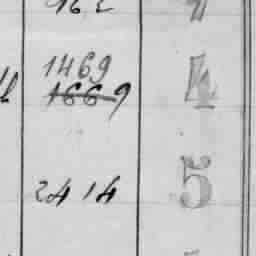 1469 4
1669
2414 5